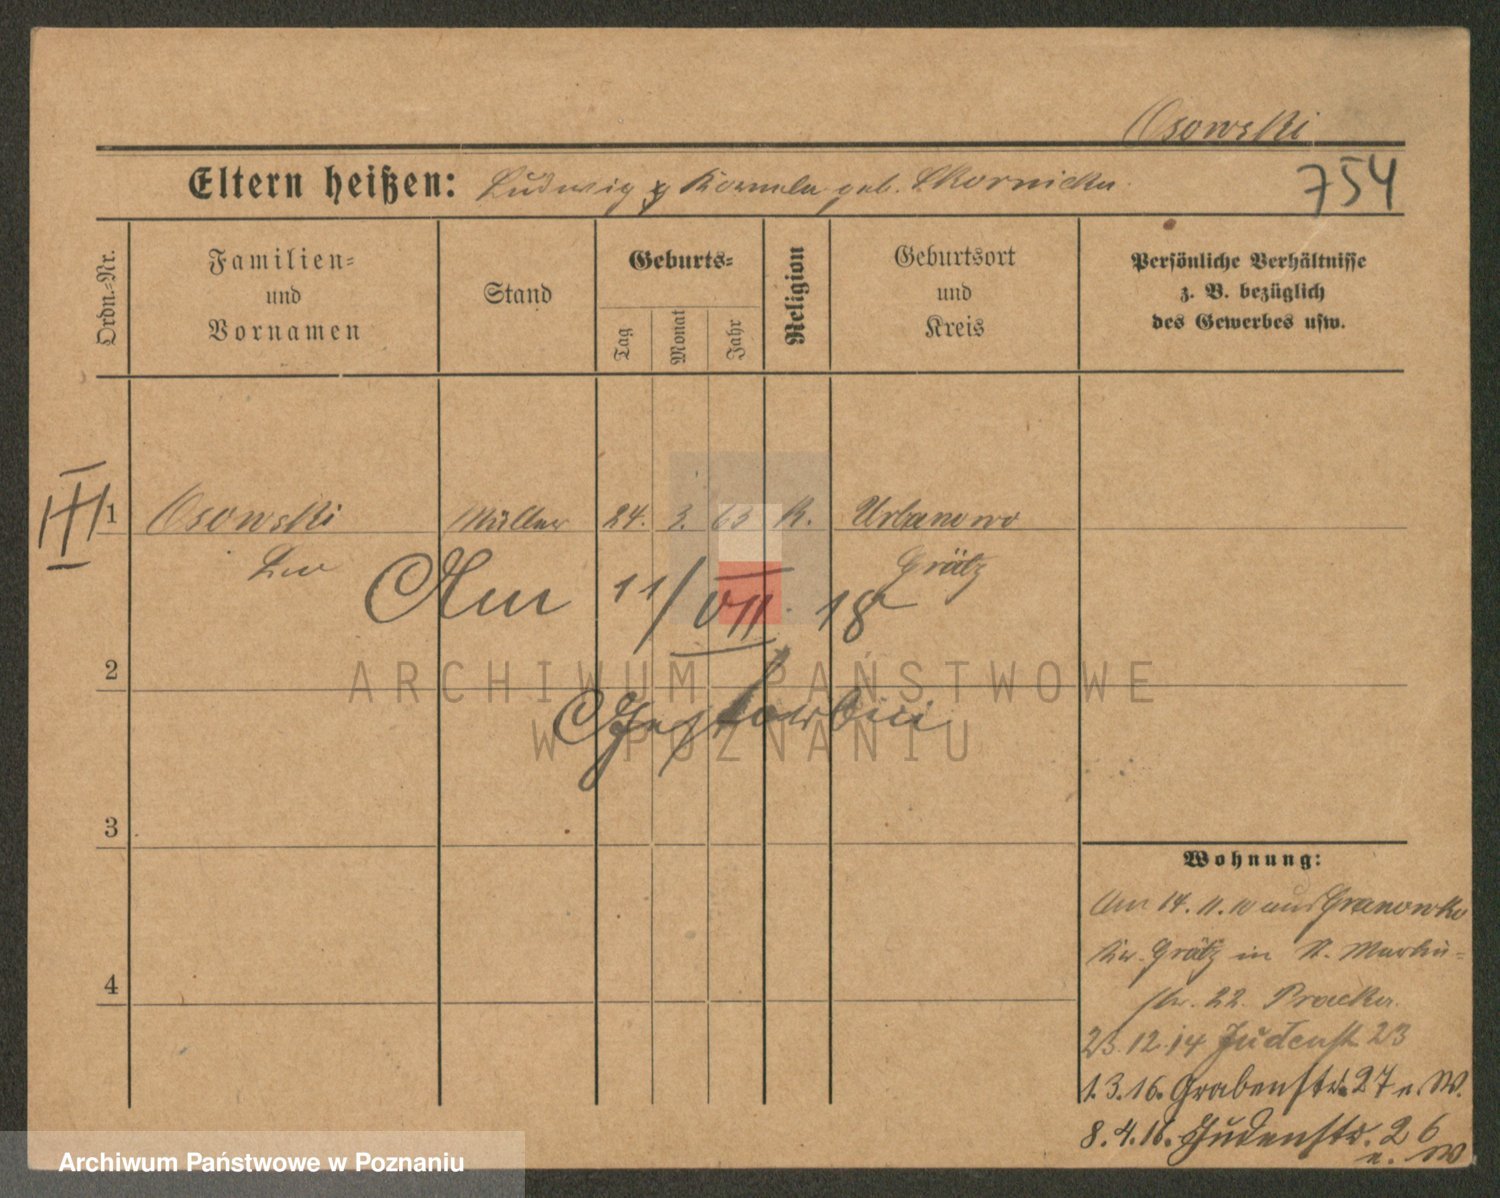 Osowski
Eltern heißen: Ludwig geb. Skornicka
754
Ordn.-Nr.
Familien-
und
Vornamen
Stand
Geburts-
Tag
Monat
Jahr
Religion
Geburtsort
und
Kreis
Persönliche Verhältnisse
z. B. bezüglich
des Gewerbes usw.
III
1 Osowski Müller 24. 3. 63 K. Urbanowo
Grätz
Am 11/VII. 18
2
3
4
ARCHIWUM PAŃSTWOWE
W POZNANIU
Wohnung:
Am 14.11.10 aus Granowko
Kr. Grätz in St. Martin-
str. 22.
23.12.14 Judenst 23
1.3.16. Grabenstr. 27 b. W.
8.4.16. Judenstr. 26
b. W
Archiwum Państwowe w Poznaniu